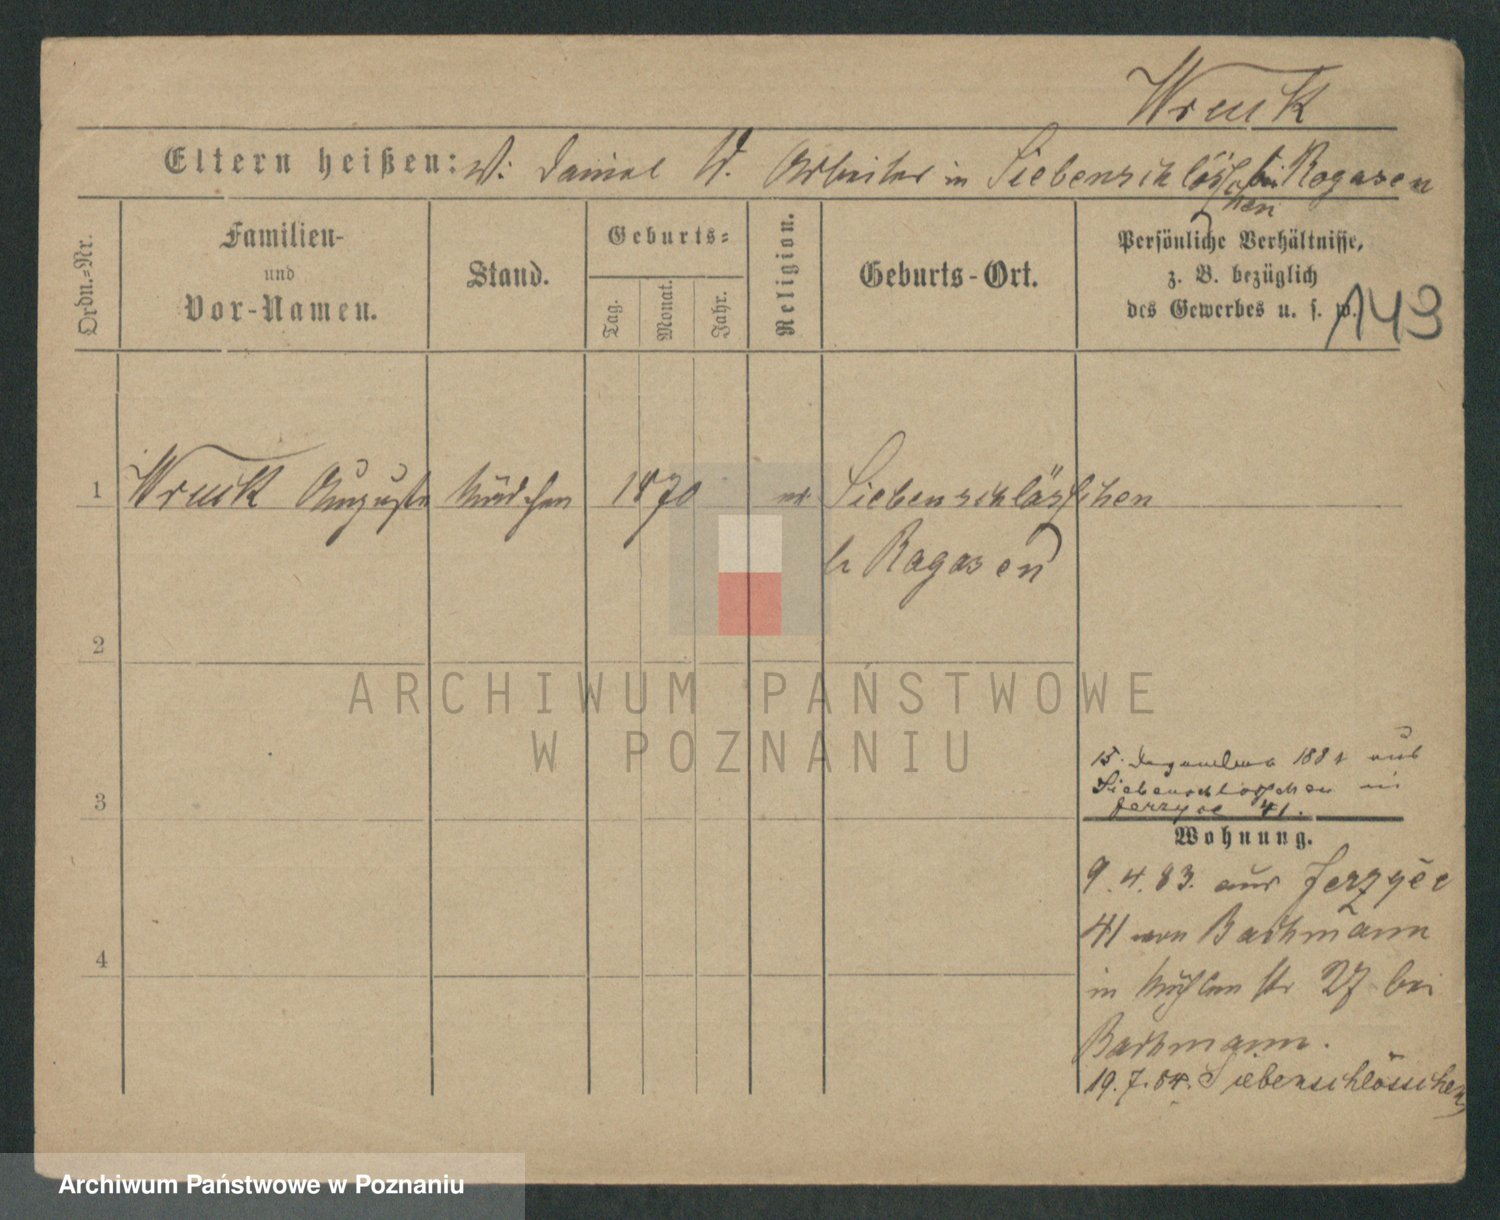 Wruck
Eltern heißen: W: Daniel W. Arbeiter in Siebenschlöß bei Rogasen
chen
Ordn.=Nr.
Familien-
und
Vor-Namen.
Stand.
Geburts=
Tag.
Monat.
Jahr.
Religion.
Geburts-Ort.
Persönliche Verhältnisse,
z. B. bezüglich
des Gewerbes u. s. w.
143
1 Wruck Auguste Mädchen 1870 Siebenschlösschen
b Rogasen
2
3
4
ARCHIWUM PAŃSTWOWE
W POZNANIU
15. Dezember 188 aus
Siebenschlösschen in
Jerzyce 41.
Wohnung.
9. 4. 83. aus Jerzyce
41 von Bachmann
in Mühlen str 27 bei
Bachmann.
19. 7. 84. Siebenschlösschen
Archiwum Państwowe w Poznaniu